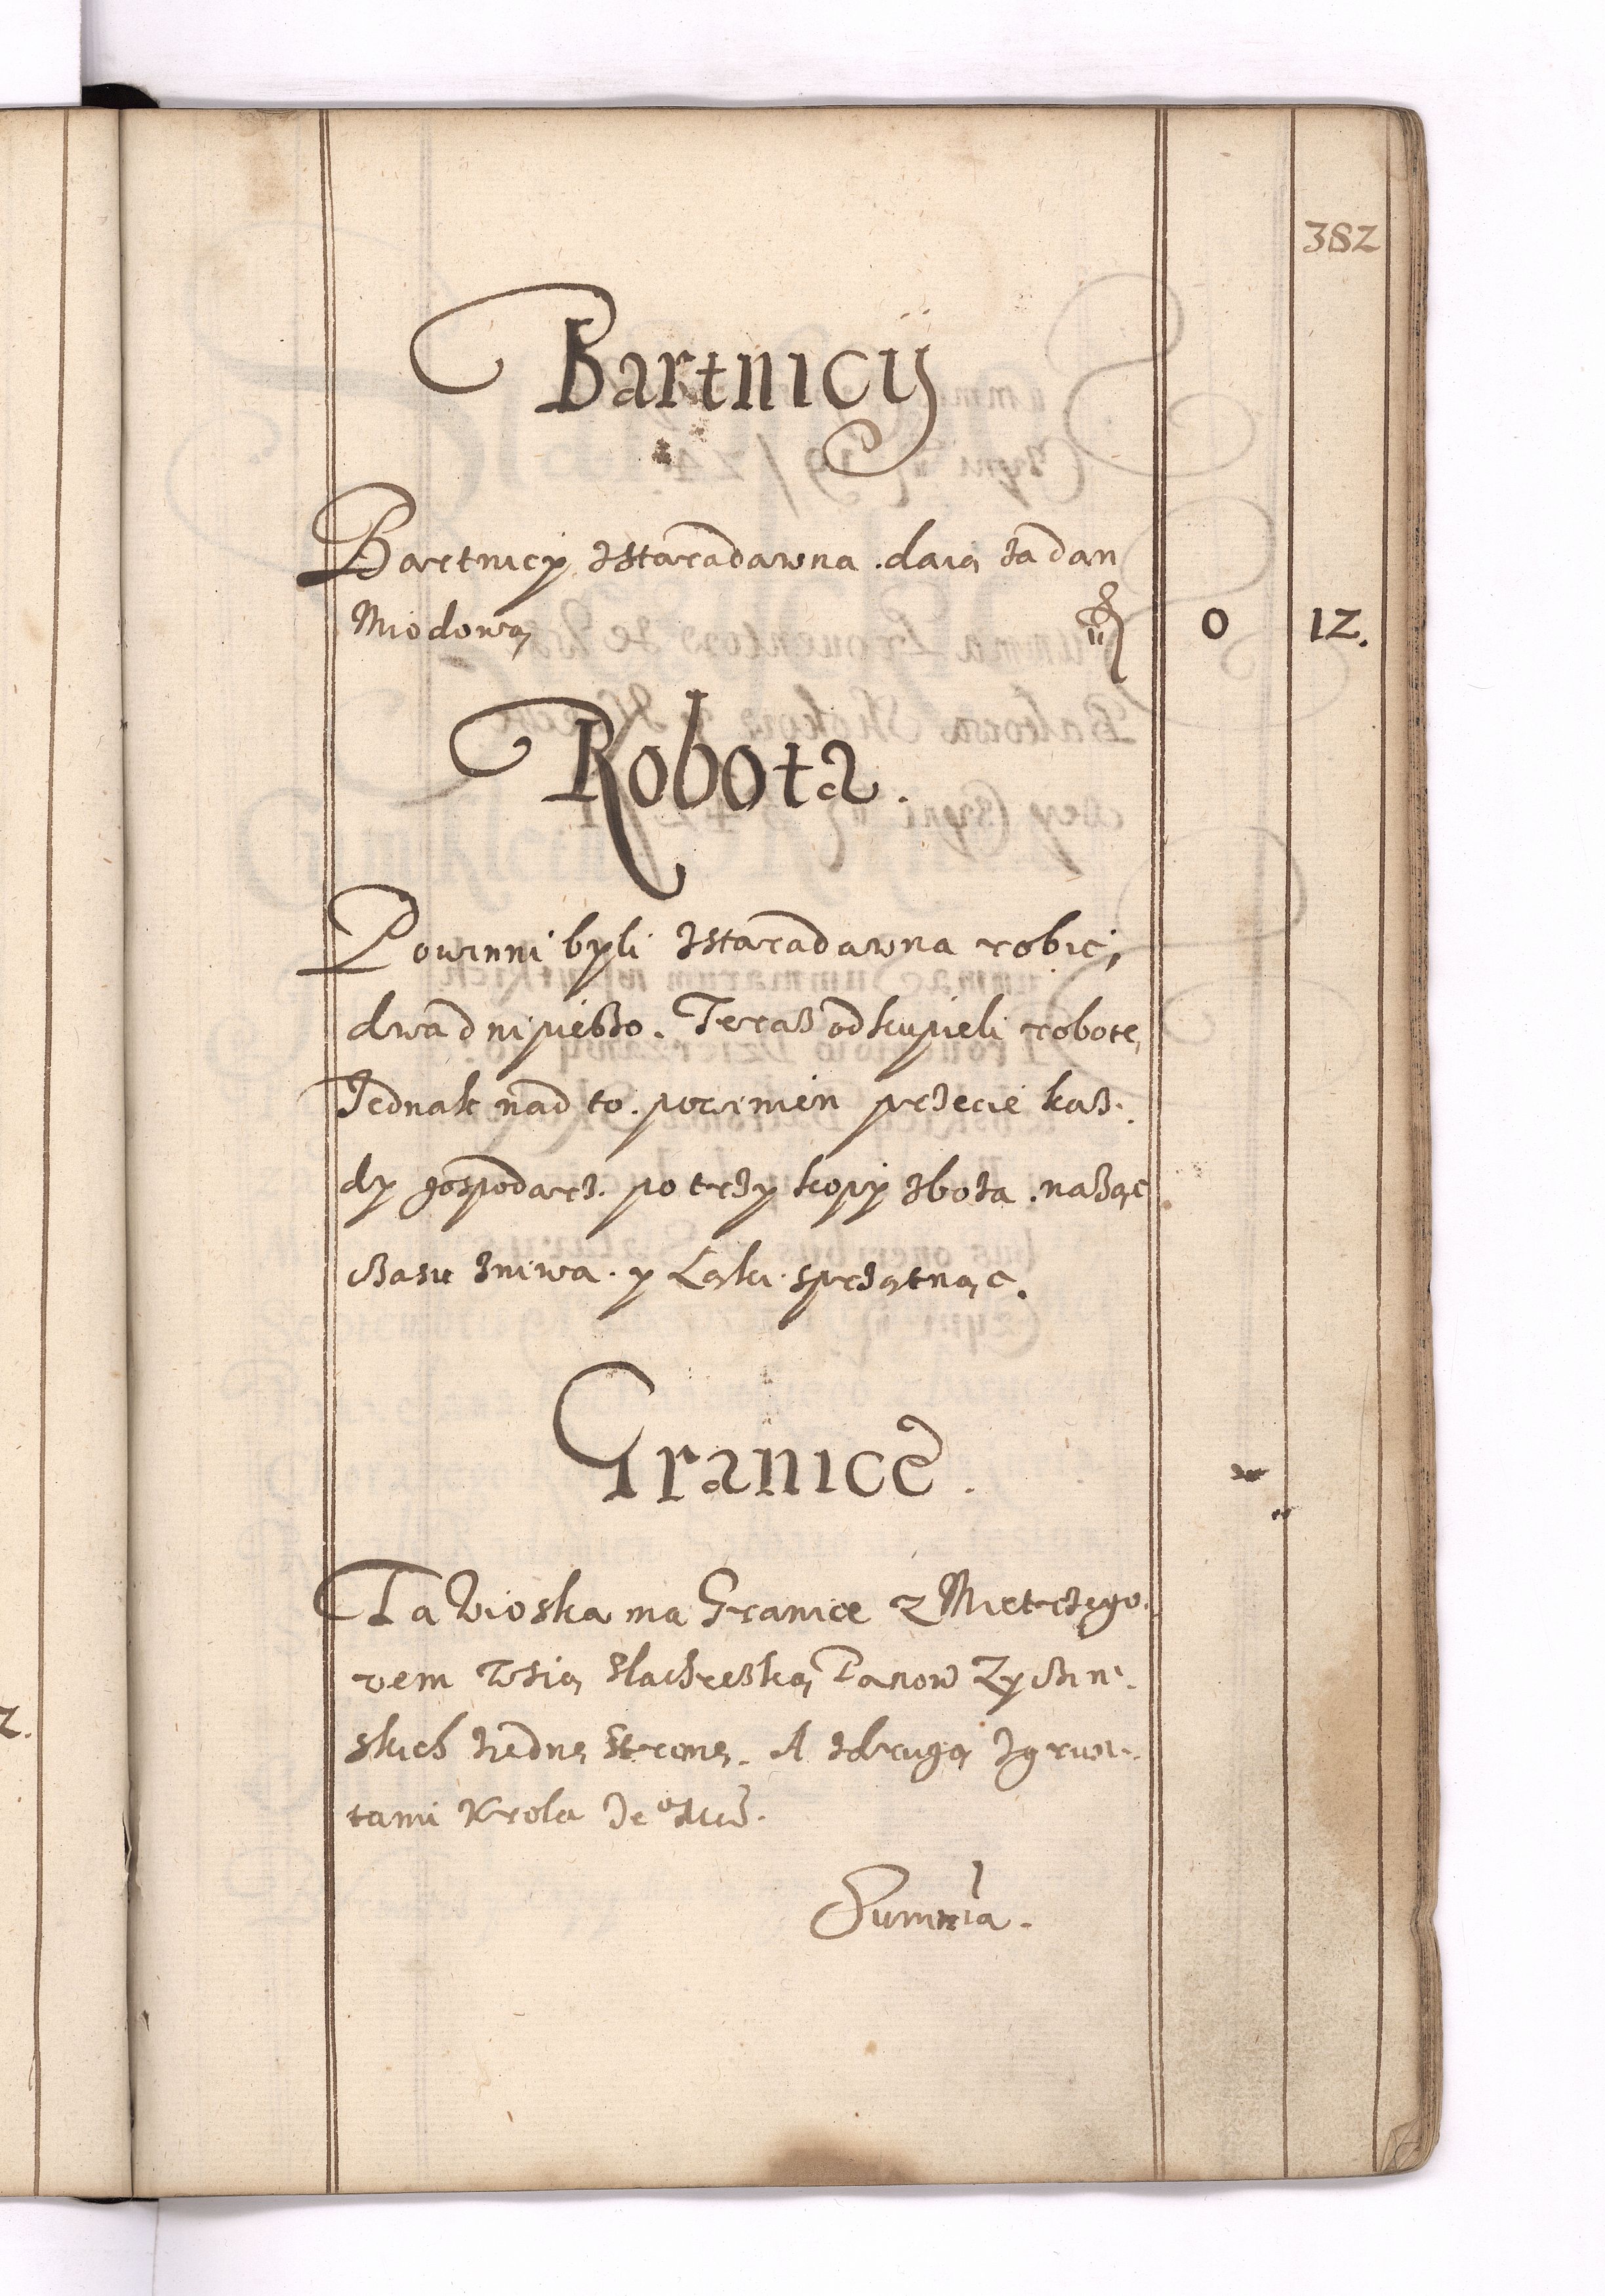 382
Bartnicÿ
Bartnicy zstaradawna daią za dan
Miodową fl 0 12.
Robota.
Powinni byli zstaradawna robić,
dwa dni pießzo. Teraß odkupieli robotę
Jednak nad to. powinien przecie kaß.
dy gospodarz. po trzy kopy zboża. nażąć
czasu żniwa. y Łąki sprzątnąc.
Granice.
Ta Wioska ma Granice z Mietrzego.
vem Wsią Slachecką Panow Zyczin.
skich ziednę stronę. A zdrugą zgrun.
tami Krola Je⁰ Mci.
Summa.
2.